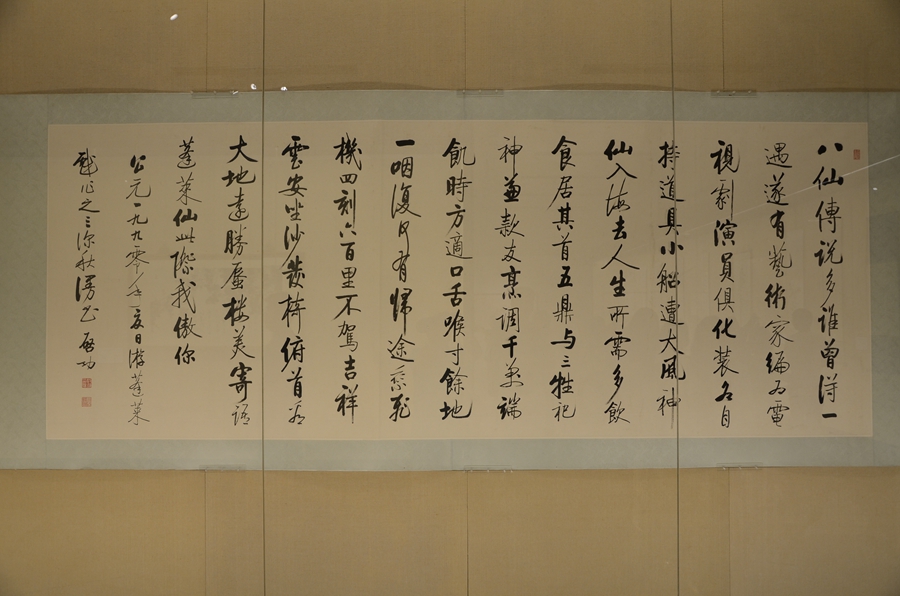 八仙傳说多谁曾得一
遇遂有藝術家编为電
視剧演員俱化装各自
持道具小船遭大風神
仙入海去人生所需多飲
食居其首五鼎与三牲祀
神兼款友烹调千萬端
飢時方適口舌喉寸餘地
一咽復何有歸途乘飛
機四刻六百里不駕吉祥
雲安坐沙發椅俯首看
大地遠勝蜃楼美寄語
蓬萊仙此際我傲你
公元一九九零年夏日游蓬萊
戲作之三深秋漫书启功